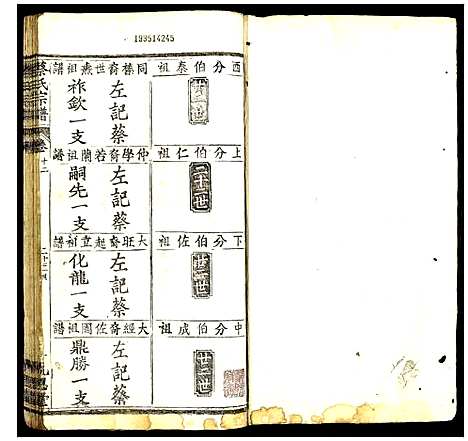 193514245
西分伯泰祖
廿二世
同榛裔世燕祖譜
左記蔡
祚欽一支
上分伯仁祖
二十二世
仲學裔若蘭祖譜
左記蔡
嗣先一支
下分伯佐祖
廿二世
大旺裔起立祖譜
左記蔡
化龍一支
中分伯成祖
廿二世
大經裔佐園祖譜
左記蔡
鼎勝一支
蔡氏宗譜
卷十二